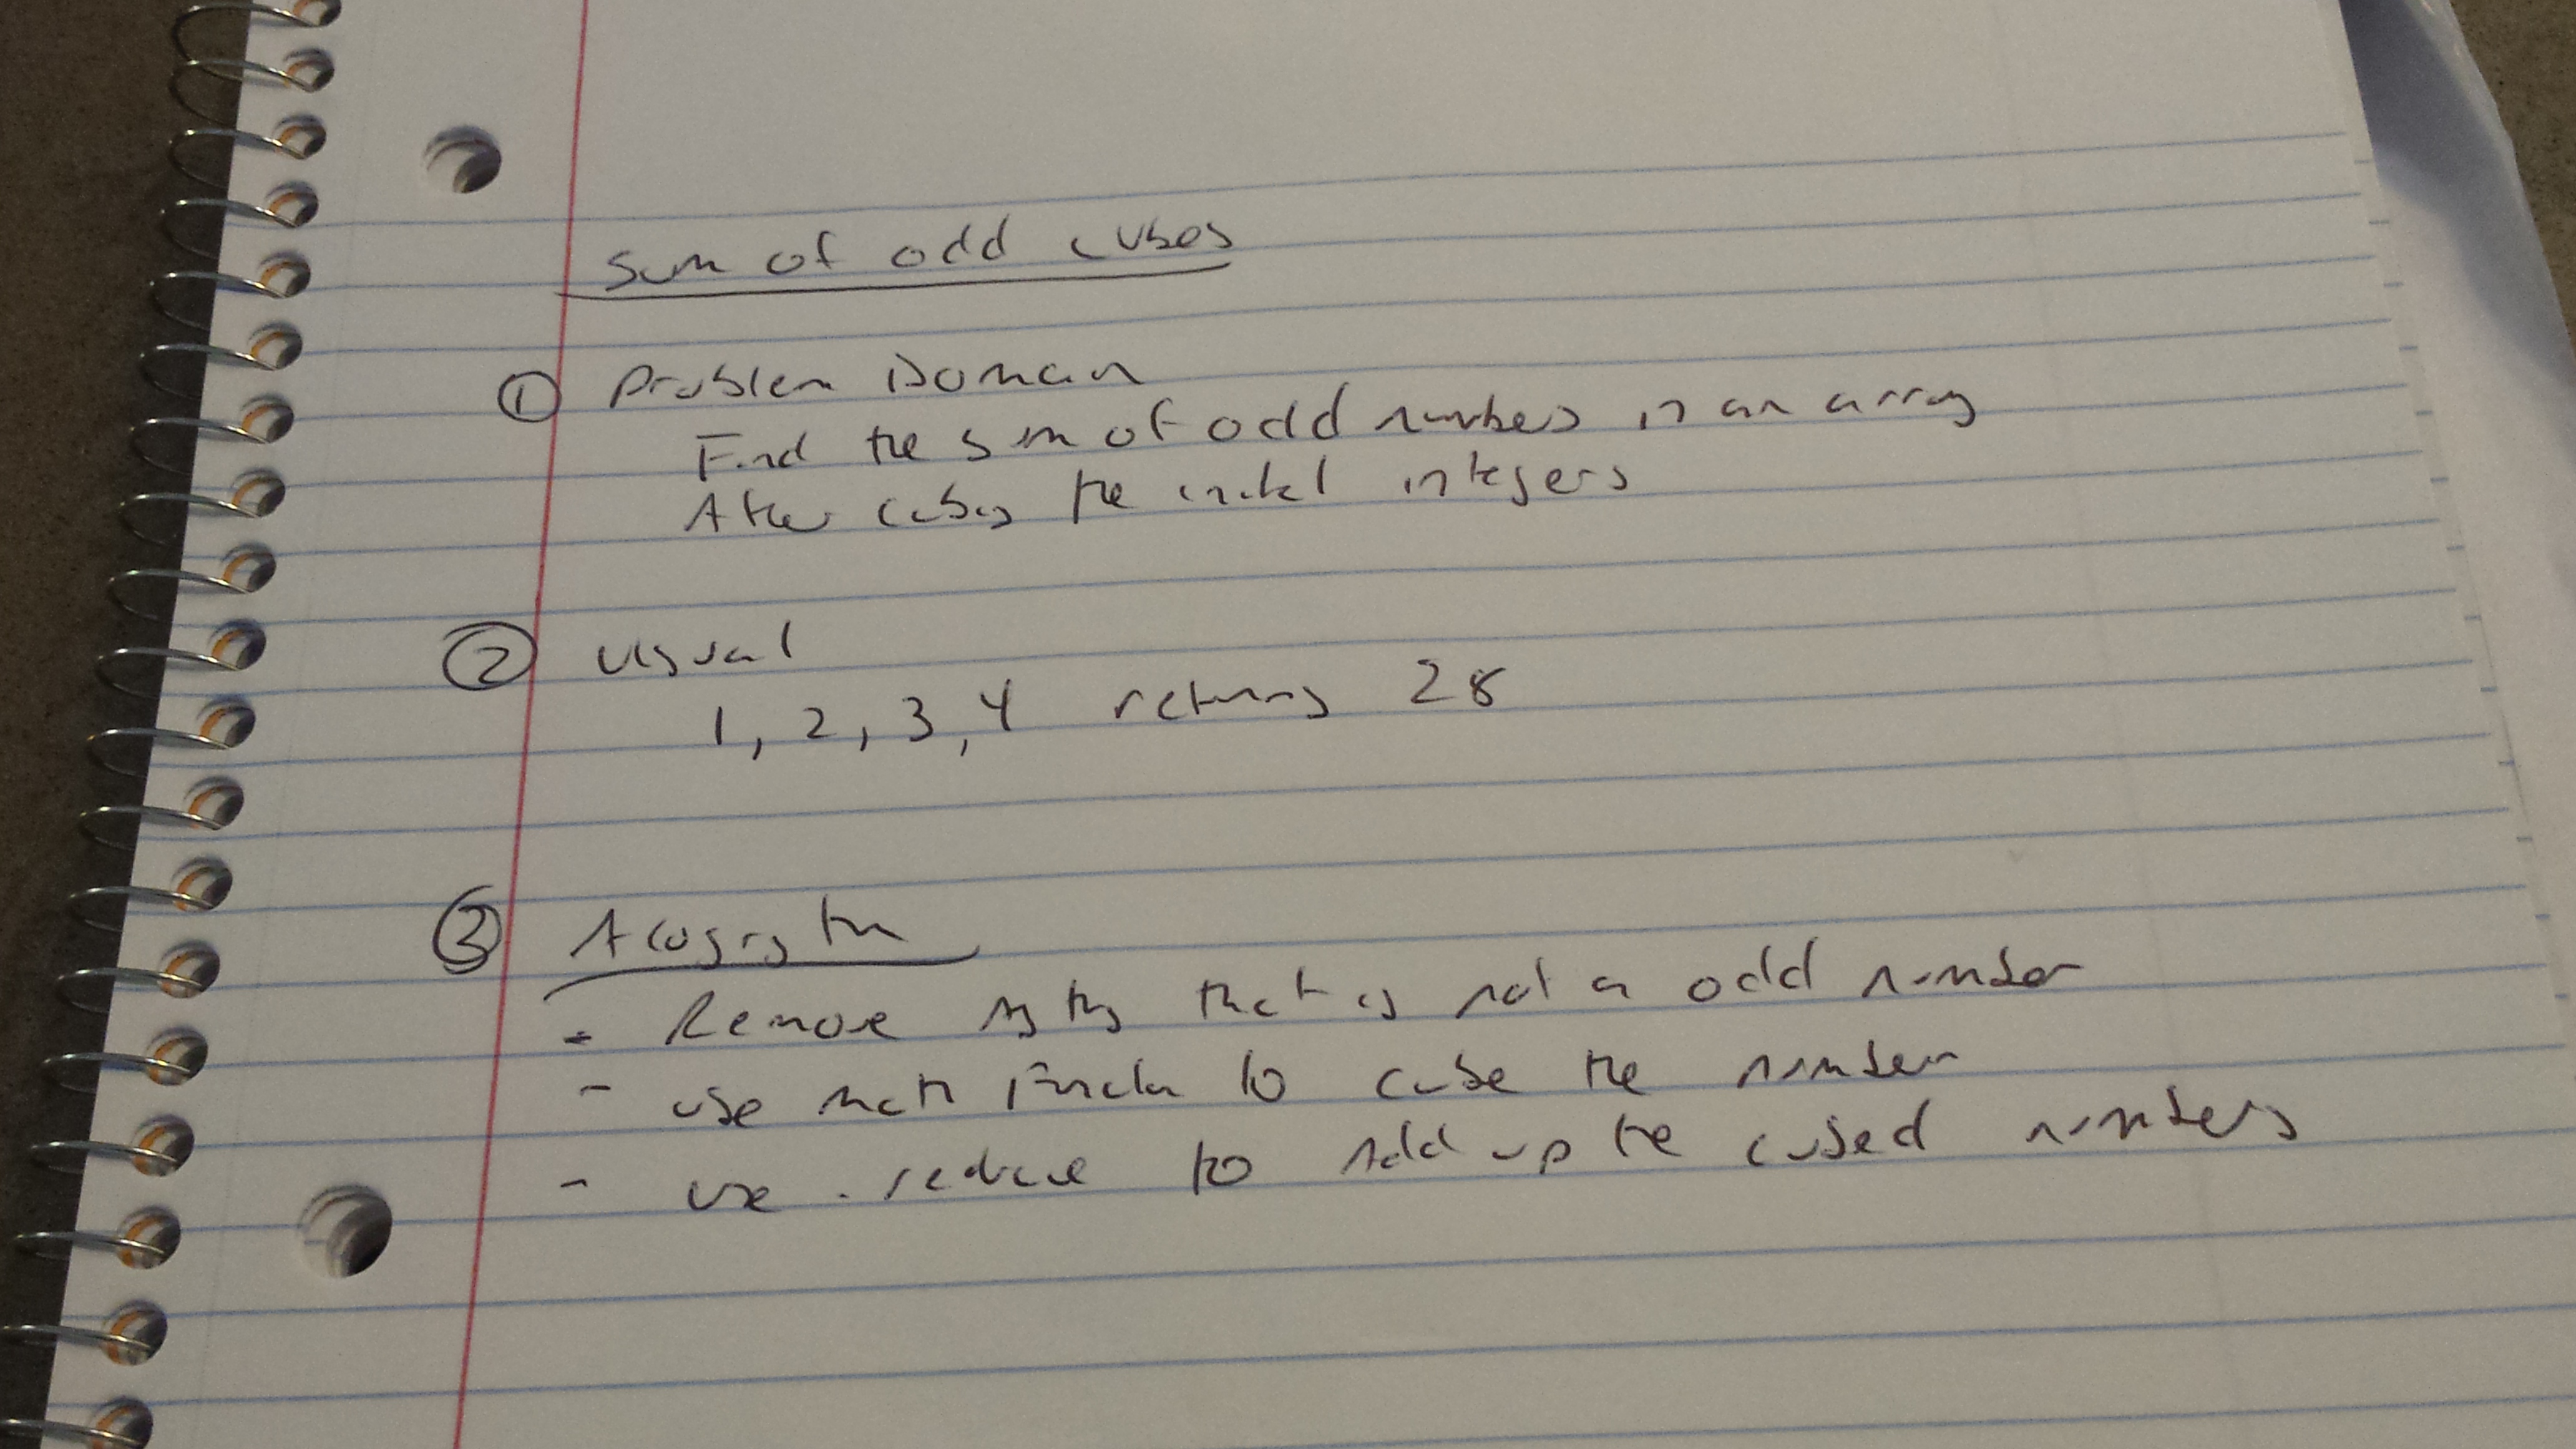 Sum of odd cubes
① Problem Domain
Find the sum of odd numbers in an array
After cubing the initial integers
② Visual
1, 2, 3, 4 returns 28
③ Alogrythm
- Remove anything that is not a odd number
- use math Function to cube the number
- use .reduce to Add up the cubed numbers